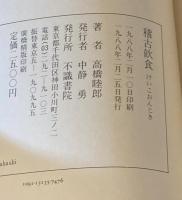 稽古飲食 けいこおんじき
一九八八年二月一〇日印刷
一九八八年二月二五日発行
著者 高橋睦郎
発行者 中静勇
発行所 不識書院
東京都千代田区神田小川町三ノ二
電話(03)二九一
振替東京五―一九〇九九五
廣橋精版印刷
定価二五〇〇円
akashi
1092-15135-7476